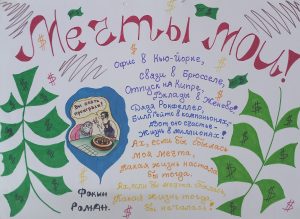 Мечты мои!
Офис в Нью-Йорке,
связи в Брюсселе,
Отпуск на Кипре,
Оклады в Женеве!
Дядя Рокфеллер,
Билл Гейтс в компаньонах,-
Вот оно счастье-
Жизнь в миллионах!
Ах, если бы сбылась
моя мечта,
Какая жизнь настала
бы тогда.
Ах, если бы мечта сбылась,
Какая жизнь тогда
бы началась!
Вы опять
проиграли!
Фокин
Роман.